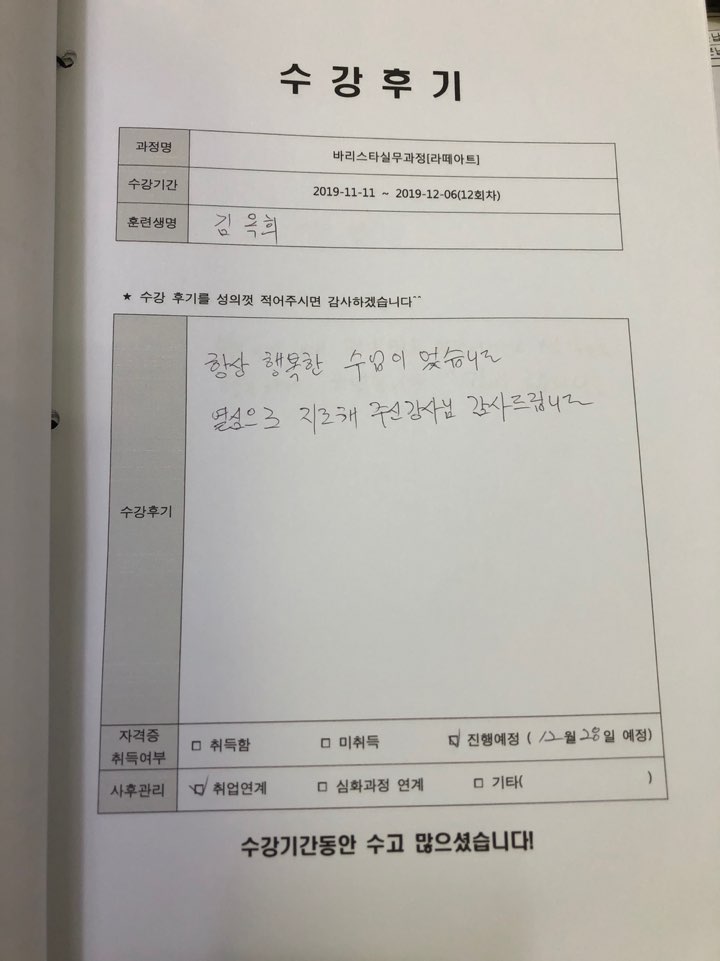 수강후기
과정명 바리스타실무과정[라떼아트]
수강기간 2019-11-11 ~ 2019-12-06(12회차)
훈련생명 김옥희
★ 수강 후기를 성의껏 적어주시면 감사하겠습니다^^
항상 행복한 수업이 었습니다
열심으로 지도해 주신강사님 감사드립니다
수강후기
자격증
취득여부
□ 취득함 □ 미취득 ☑ 진행예정 ( 12월 28일 예정)
사후관리 ☑ 취업연계 □ 심화과정 연계 □ 기타( )
수강기간동안 수고 많으셨습니다!